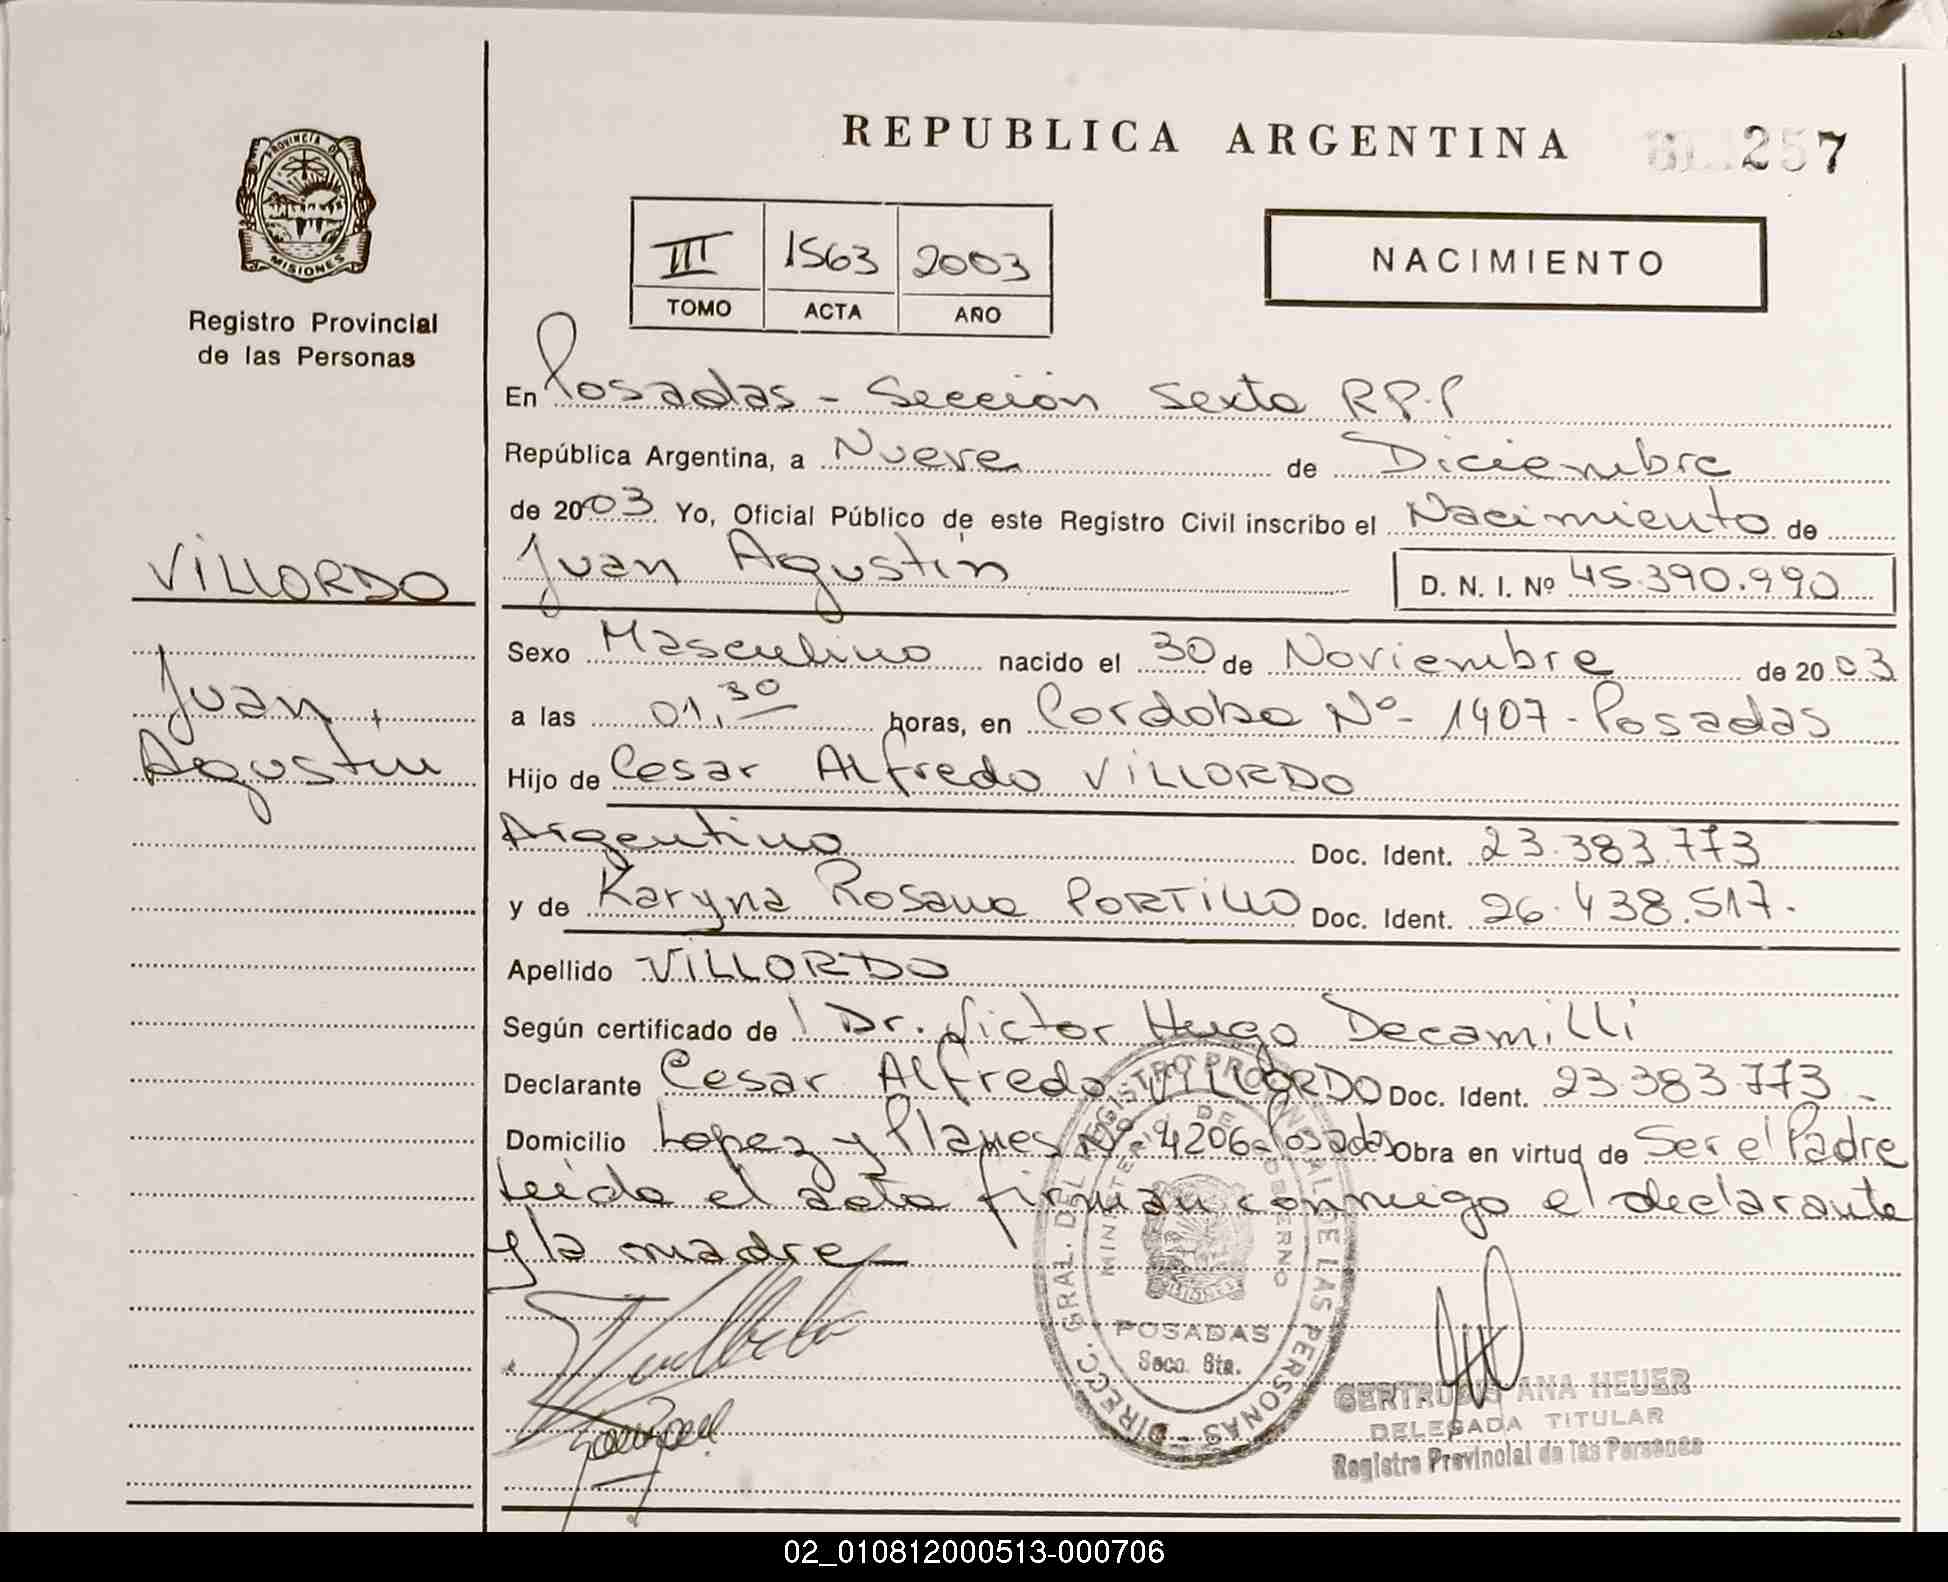 REPUBLICA ARGENTINA
257
PROVINCIA DE
MISIONES
Registro Provincial
de las Personas
III 1563 2003
TOMO ACTA AÑO
NACIMIENTO
En Posadas - Sección Sexta R.P.P
República Argentina, a Nueve de Diciembre
de 2003 Yo, Oficial Público de este Registro Civil inscribo el Nacimiento de
VILLORDO
Juan Agustín
D. N. I. Nº 45.390.990
Sexo Masculino nacido el 30 de Noviembre de 2003
Juan
Agustín
a las 01,30 horas, en Cordoba Nº- 1407 - Posadas
Hijo de Cesar Alfredo VILLORDO
Argentino Doc. Ident. 23.383.773
y de Karyna Rosana PORTILLO Doc. Ident. 26.438.517.
Apellido VILLORDO
Según certificado de Dr. Victor Hugo Decamilli
Declarante Cesar Alfredo VILLORDO Doc. Ident. 23.383.773
Domicilio Lopez y Planes Nº- 4206-Posadas Obra en virtud de Ser el Padre
Leída el acta firman conmigo el declarante
y la madre
DIRECC. GRAL. DEL REGISTRO PROVINCIAL DE LAS PERSONAS
MINISTERIO DE GOBIERNO
MISIONES
POSADAS
Secc. 6ta.
GERTRUDIS ANA HEUER
DELEGADA TITULAR
Registro Provincial de las Personas
02_010812000513-000706